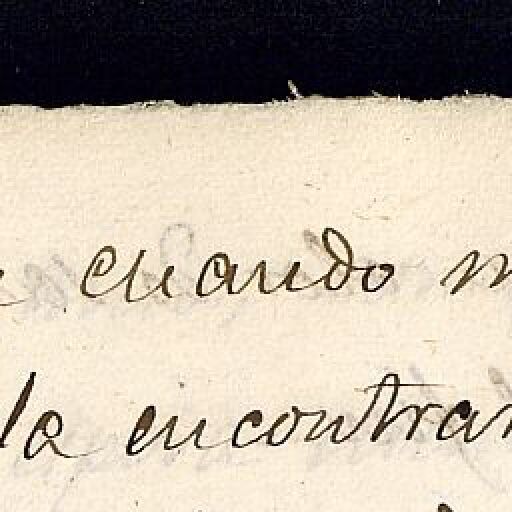 cuando
la encontrar